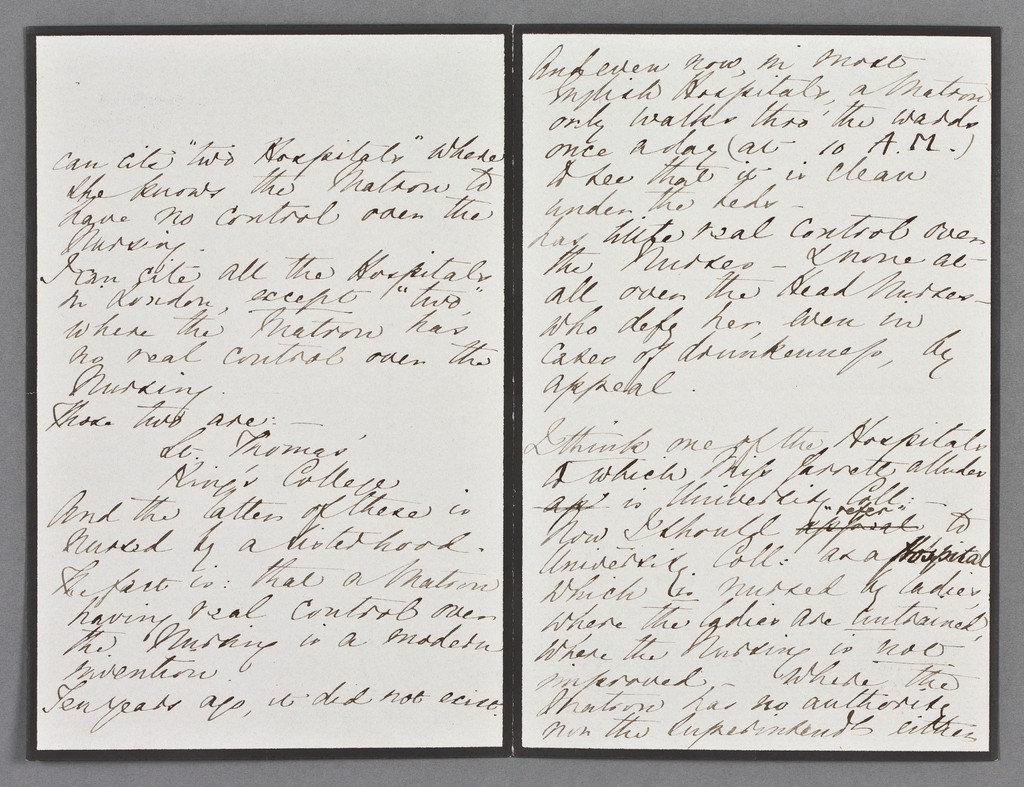 can cite "two Hospitals" where
she knows the Matron to
have no control over the
Nursing.
I can cite all the Hospitals
in London, except "two,"
where the Matron has
no real control over the
Nursing.
Those two are: -
St. Thomas'
King's College
And the latter of these is
nursed by a sisterhood.
The fact is: that a Matron
having real control over
the Nursing is a modern
invention
Ten years ago, it did not exist.
And even now, in most
English Hospitals, a Matron
only walks thro' the wards
once a day (at 10 A.M.)
to see that it is clean
under the beds -
has little real control over
the Nurses - & none at
all over the Head Nurses -
who defy her, even in
cases of drunkenness, by
appeal.
I think one of the Hospitals
to which Miss Garrett alludes
is University Coll: -
Now I should "refer" to
University Coll: as a Hospital
which is nursed by ladies,
where the ladies are untrained,
where the Nursing is not
improved - where the
Matron has no authority
nor the Superintendt either